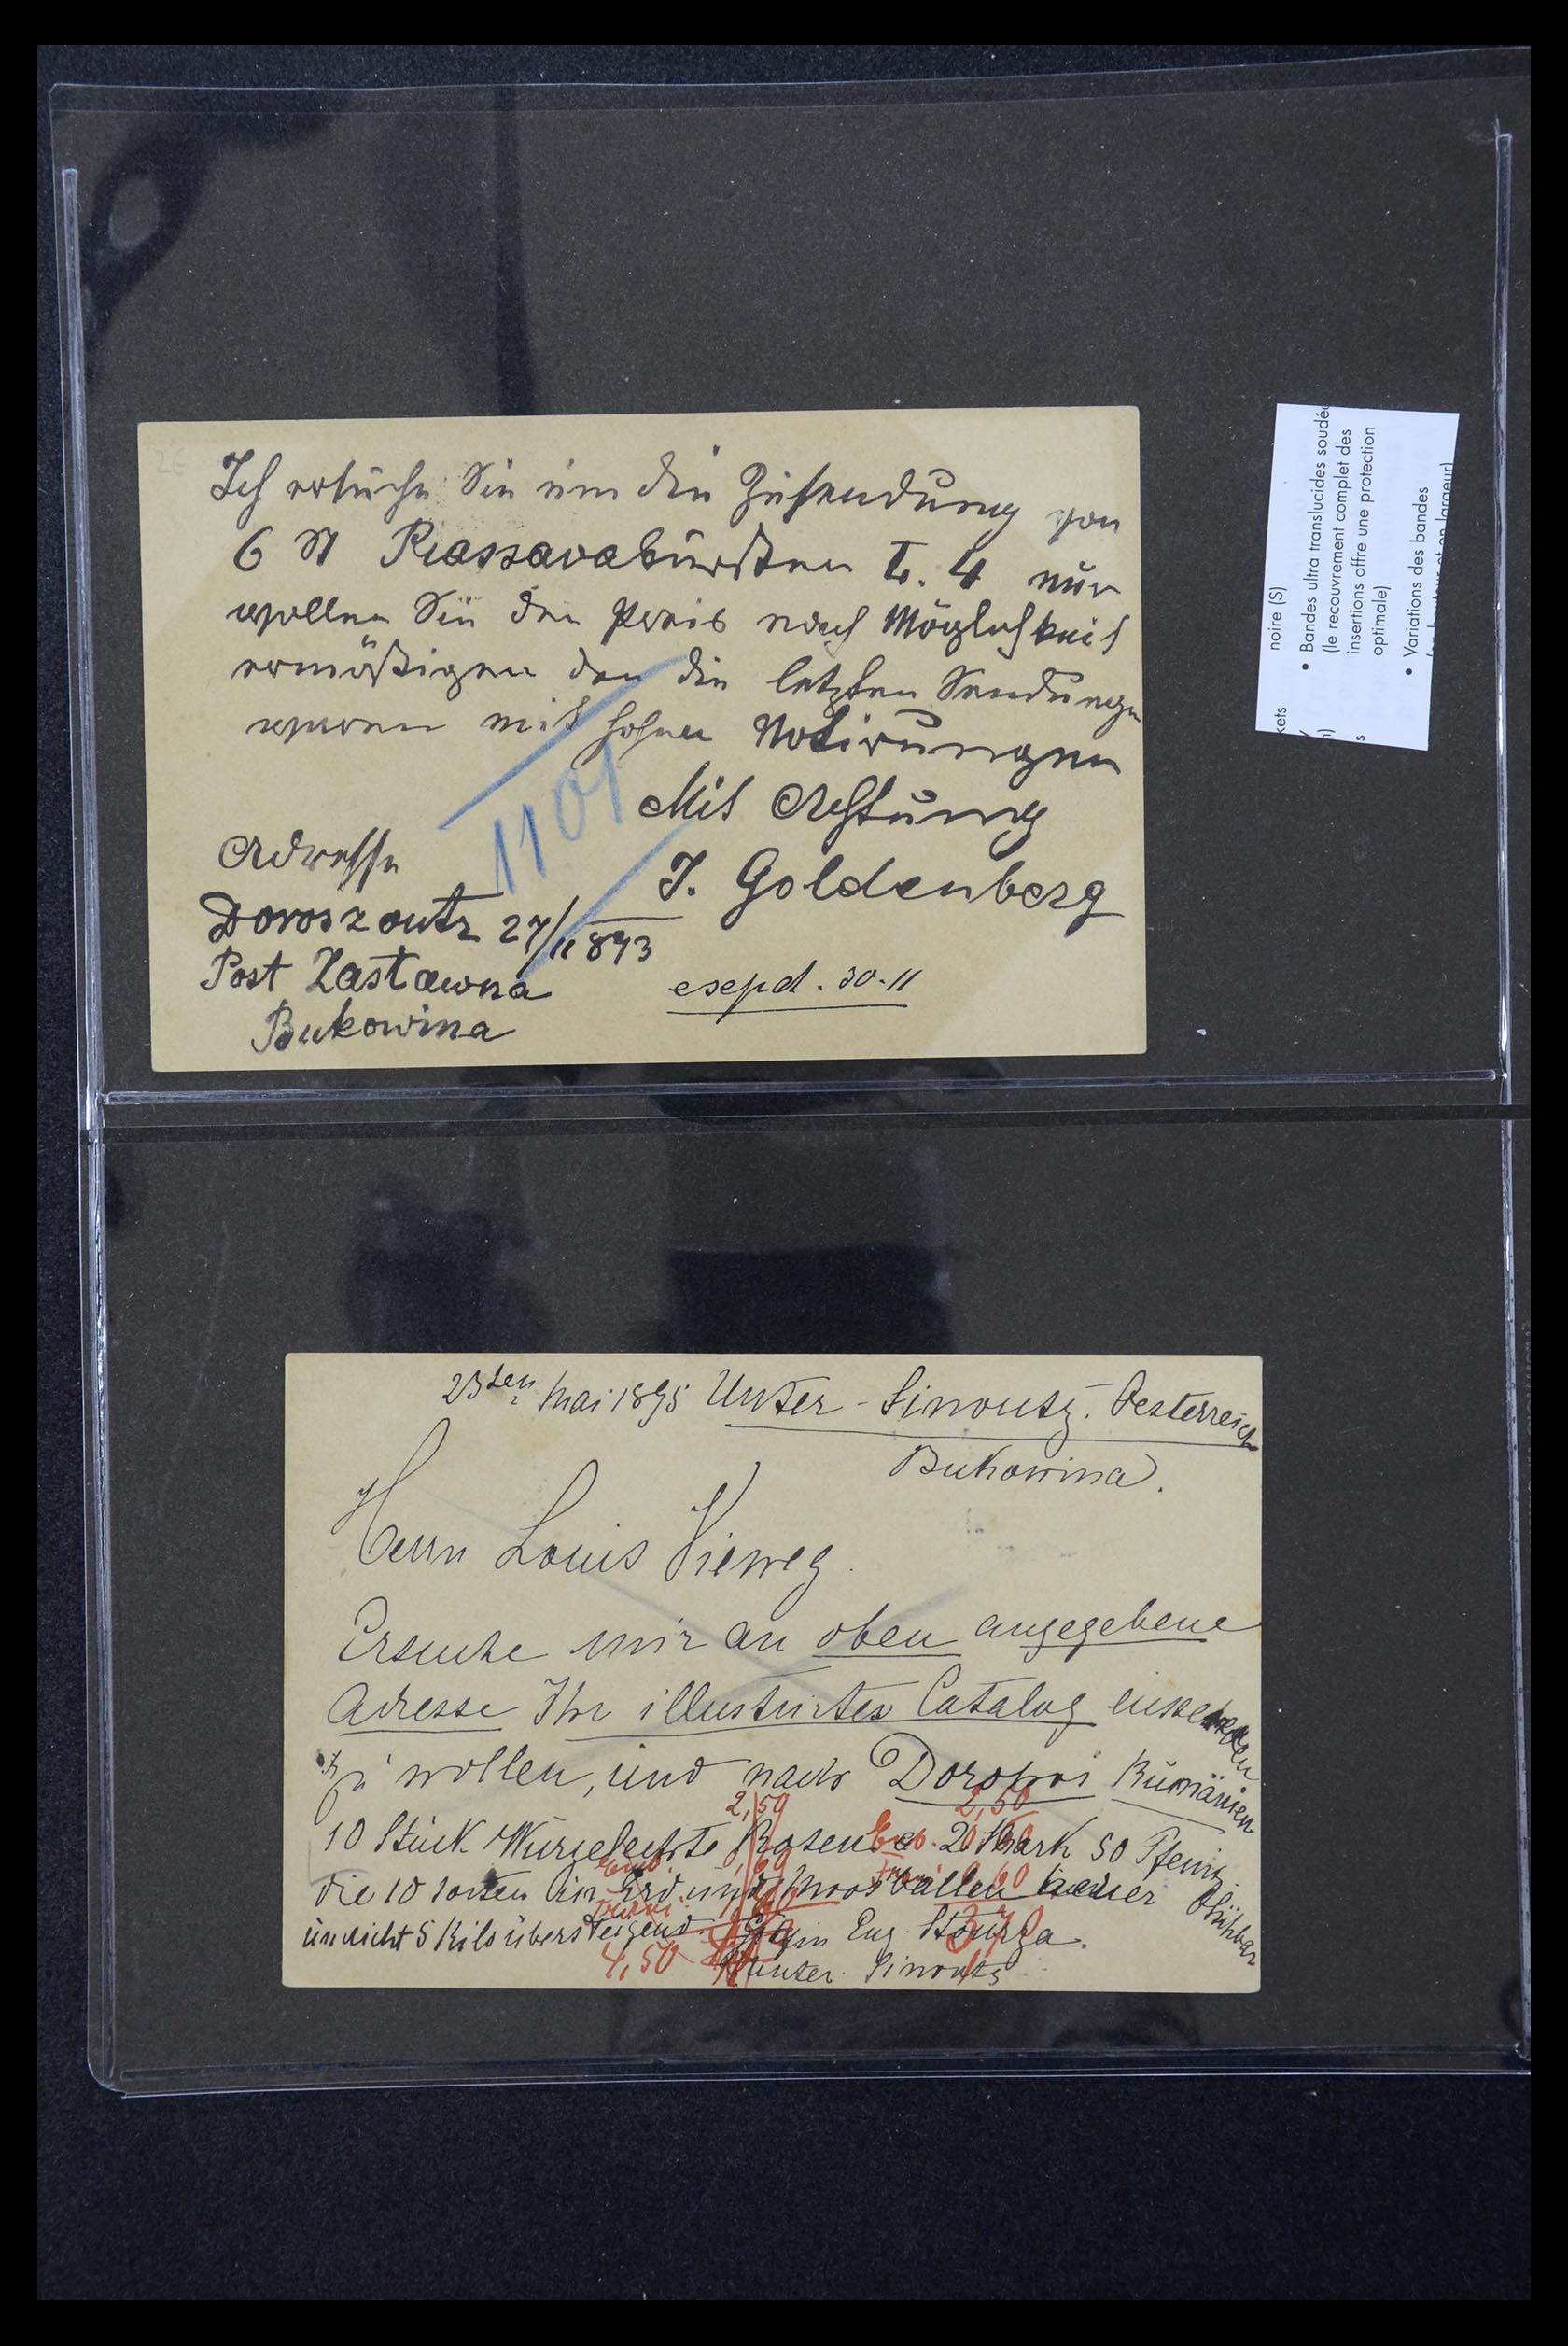 Ich ersuche Sie um die Zusendung von
6 St Piassavabürsten Tr. 4 nur
wollen Sie den Preis nach Möglichkeit
ermäßigen den die letzten Sendungen
waren mit hohen Notirungen
Mit Achtung
J. Goldenberg
1101
Adresse
Doroszoutz 27/11 893
Post Zastawna
Bukowina
esepd. 30.11
noire (S)
• Bandes ultra translucides soudée
(le recouvrement complet des
insertions offre une protection
optimale)
• Variations des bandes
kets
23ten Mai 1895 Unter-Sinoutz. Oesterreich
Bukowina.
Herrn Louis Vieweg.
Ersuche mir an oben angegebene
Adresse Ihr illustrirtes Catalog einsenden
zu wollen, und nach Dorohoi Rumänien
2,50 2,50
10 Stück Wurzelechte Rosen a 2 Mark 50 Pfenig
die 10 Sorten in Erd und Moosballen
und nicht 5 Kilo übersteigend Eug. Stourza.
4,50 Unter Sinoutz